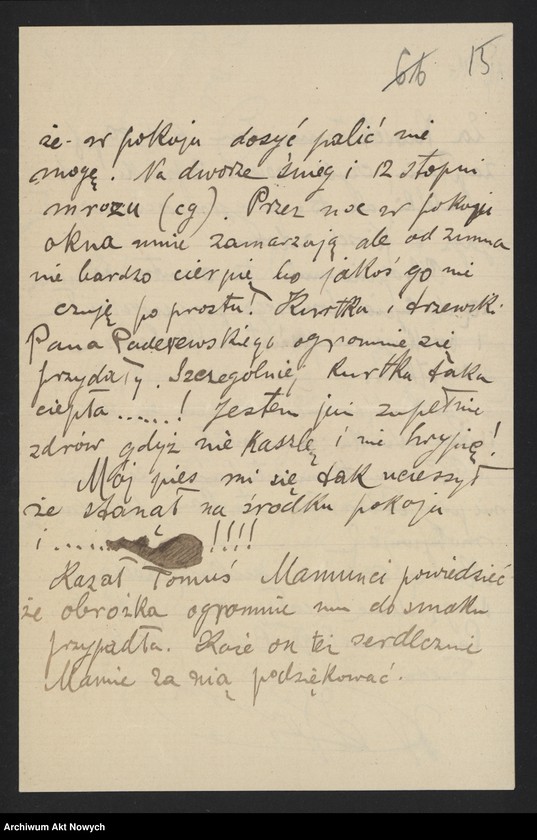 66 15
że w pokoju dosyć palić nie
mogę. Na dworze śnieg i 12 stopni
mrozu (cg). Przez noc w pokoju
okna mnie zamarzają ale od zimna
nie bardzo cierpię bo jakoś go nie
czuję po prostu! Kurtka i drzewsk.
Pana Paderewskiego ogromnie się
przydały. Szczególniej kurtka taka
ciepła......! Jestem już zupełnie
zdrów gdyż nie kaszlę i nie hrypię!
Mój pies mi się tak ucieszył
że stanął na środku pokoju
i ...... !!!!
Kazał Tomuś Mamunci powiedzieć
że obrożka ogromnie mu do smaku
przypadła. Każe on też serdecznie
Mamie za nią podziękować.
Archiwum Akt Nowych